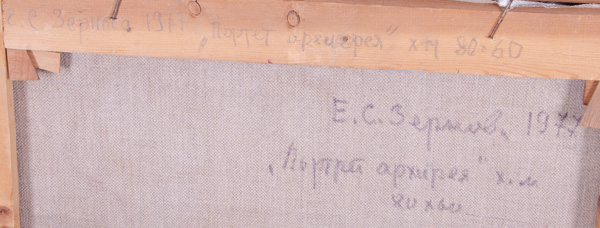 Е.С. Зернова 1977 „Портрет архиерея" х.м 80×60
Е.С. Зернова, 1977
„Портрет архиерея" х.м
80х60